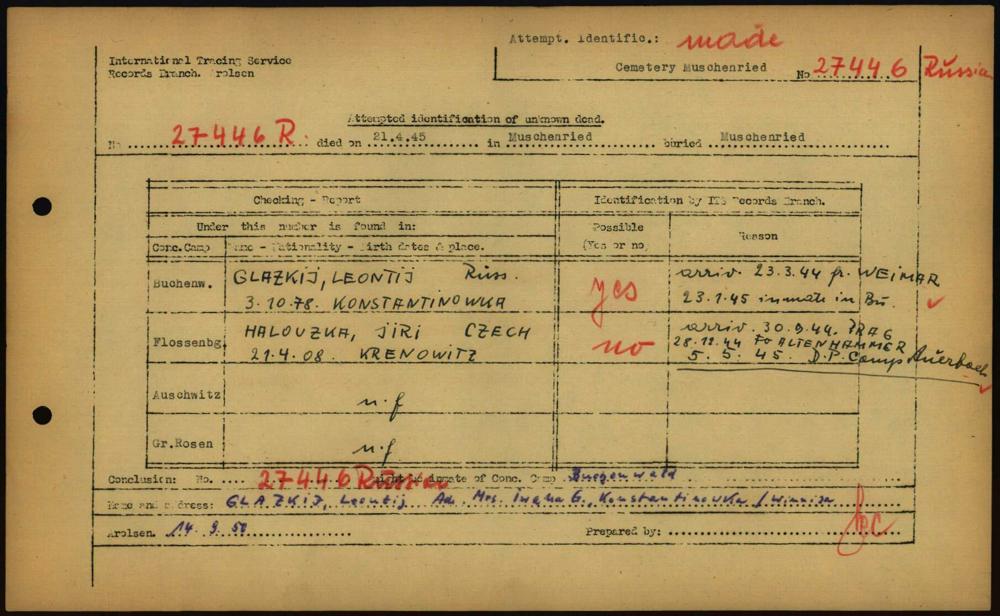 Attempt. Identific.: made
International Tracing Service
Records Branch. Arolsen
Cemetery Muschenried
No 27446 Russian
Attempted identification of unknown dead.
No 27446 R. died on 21.4.45 in Muschenried buried Muschenried
Checking - Report Identification by ITS Records Branch.
Under this number is found in: Possible Reason
Conc.Camp Name - Nationality - Birth dates & place. (Yes or no)
Buchenw. GLAZKIJ, LEONTIJ Russ. yes arriv. 23.3.44 fr. WEIMAR
3.10.78. KONSTANTINOWKA 23.1.45 inmate in Bu.
Flossenbg. HALOUZKA, JIRI CZECH no arriv. 30.9.44. PRAG
21.4.08. KRENOWITZ 28.12.44 to ALTENHAMMER
5.5.45. D.P. Camp Auerbach
Auschwitz n.f
Gr.Rosen n.f
Conclusion: No. 27446 Russian might be inmate of Conc. Camp Buchenwald
Name and address: GLAZKIJ, Leontij Ad. Mrs. G., Konstantinowka /
Arolsen. 14.9.50 Prepared by: